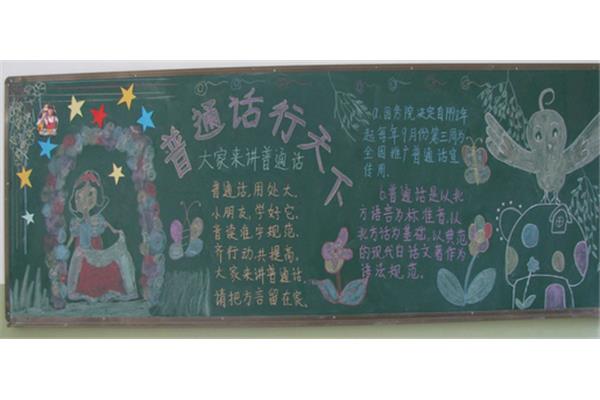 普通话行天下
大家来讲普通话
普通话,用处大,
小朋友,学好它,
音读准,字规范,
齐行动,共提高,
大家来讲普通话,
请把方言留在家.
a.国务院决定自1998年
起每年9月份第三周为
全国推广普通话宣
传周.
b.普通话是以北
方语音为标准音,以
北方话为基础,以典范
的现代白话文著作为
语法规范.